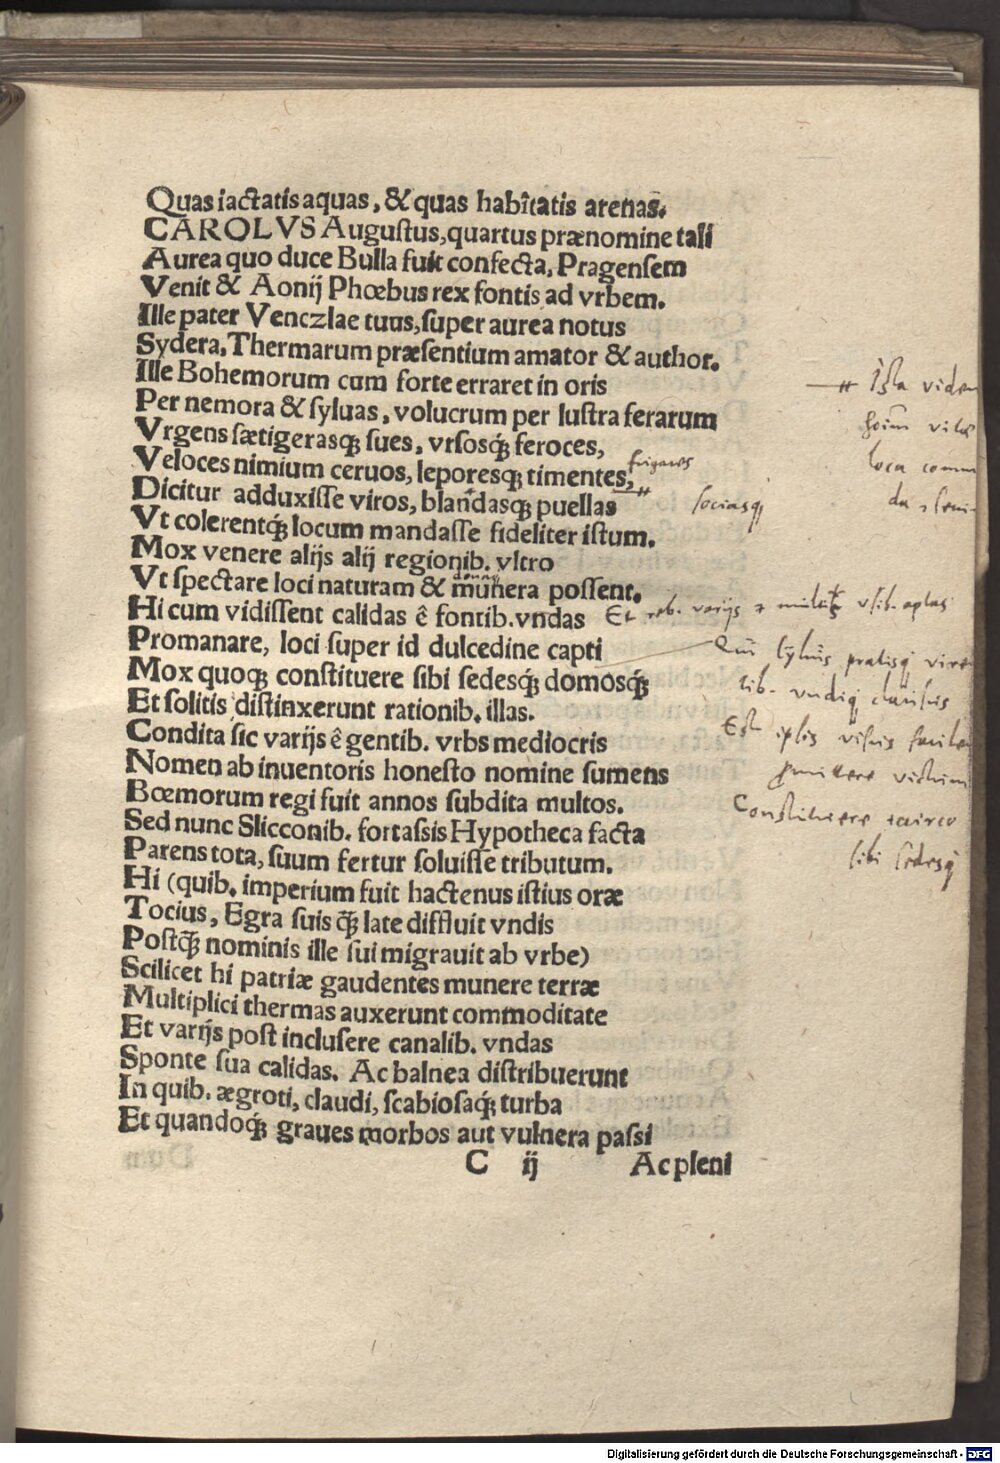 Quas iactatis aquas, & quas habitatis arenas.
CAROLVS Augustus, quartus prænomine tali
Aurea quo duce Bulla fuit confecta, Pragensem
Venit & Aonij Phœbus rex fontis ad vrbem.
Ille pater Venczlae tuus, super aurea notus
Sydera, Thermarum præsentium amator & author.
Ille Bohemorum cum forte erraret in oris
Per nemora & syluas, volucrum per lustra ferarum
Vrgens sætigerasq; sues, vrsosq; feroces,
Veloces nimium ceruos, leporesq; timentes,
Dicitur adduxisse viros, blandasq; puellas sociasq;
Vt colerentq; locum mandasse fideliter istum.
Mox venere alijs alij regionib. vltro
Vt spectare loci naturam & munera possent.
Hi cum vidissent calidas ê fontib. vndas
Promanare, loci super id dulcedine capti
Mox quoq; constituere sibi sedesq; domosq;
Et solitis distinxerunt rationib. illas.
Condita sic varijs ê gentib. vrbs mediocris
Nomen ab inuentoris honesto nomine sumens
Bœmorum regi fuit annos subdita multos.
Sed nunc Slicconib. fortassis Hypotheca facta
Parens tota, suum fertur soluisse tributum.
Hi (quib. imperium fuit hactenus istius oræ
Tocius, Egra suis q̃; late diffluit vndis
Postq̃; nominis ille sui migrauit ab vrbe)
Scilicet hi patriæ gaudentes munere terræ
Multiplici thermas auxerunt commoditate
Et varijs post inclusere canalib. vndas
Sponte sua calidas. Ac balnea distribuerunt
In quib. ægroti, claudi, scabiosaq; turba
Et quandoq; graues morbos aut vulnera passi
C ij Ac pleni
Ista viden
loca comm
Et reb. varijs
pratisq;
tib. vndiq;
victum
Constituere
sibi sedesq;
Digitalisierung gefördert durch die Deutsche Forschungsgemeinschaft - DFG